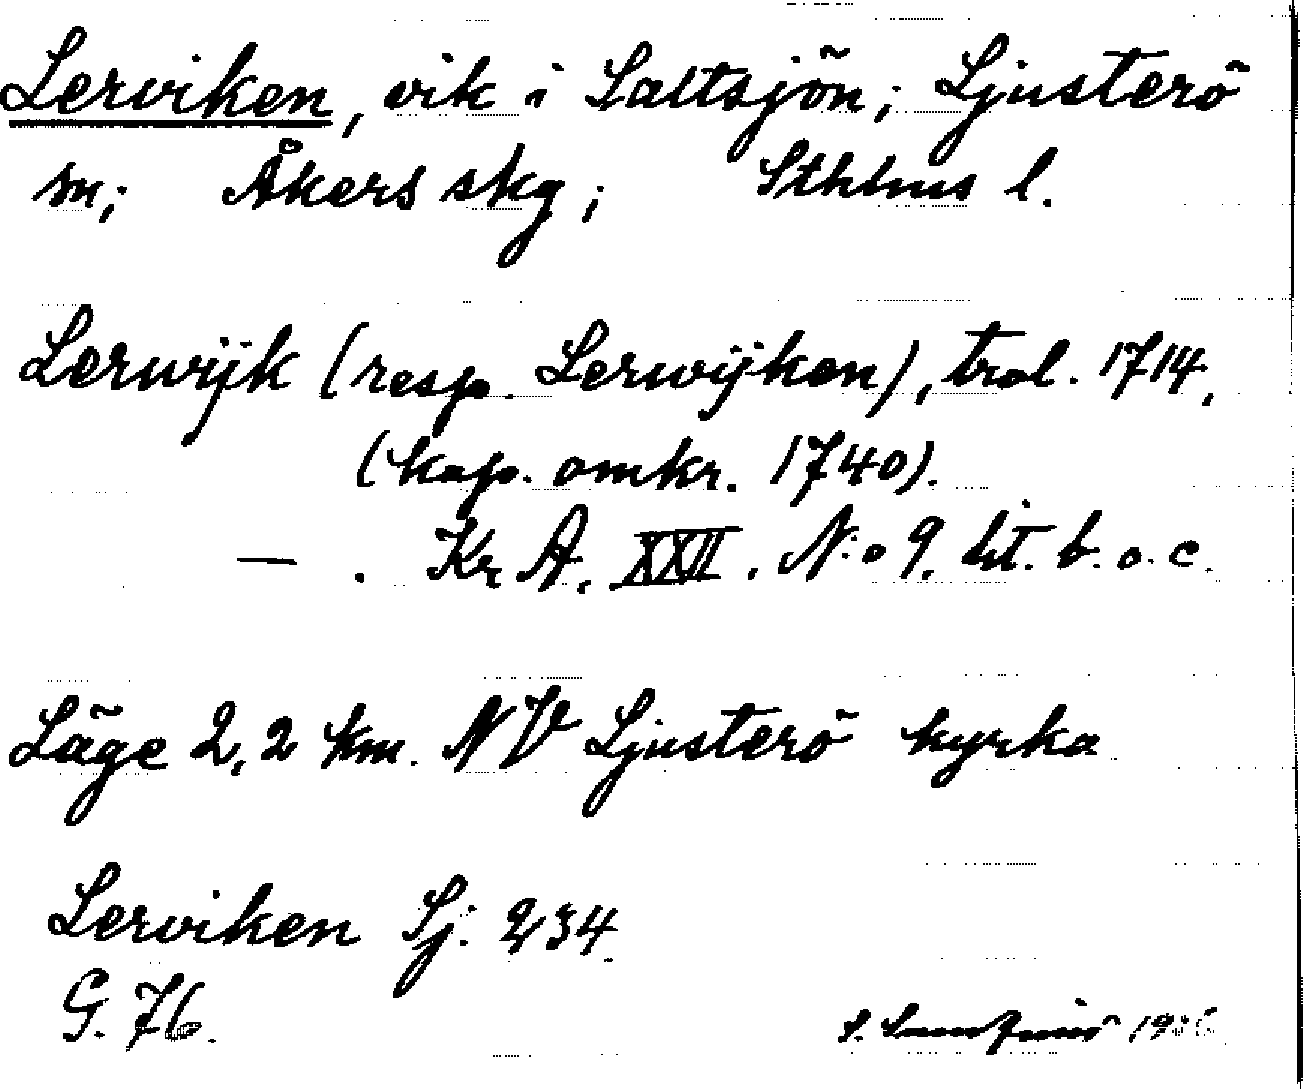 Lerviken, vik i Saltsjön; Ljusterö
sn; Åkers skg; Sthlms l.
Lerwijk (resp. Lerwijken), trol. 1714,
(kop. omkr. 1740).
— . Kr A. XXII. N:o 9. lit. b. o. c.
Läge 2,2 km. NV Ljusterö kyrka
Lerviken Sj. 234.
G. 76.
S.